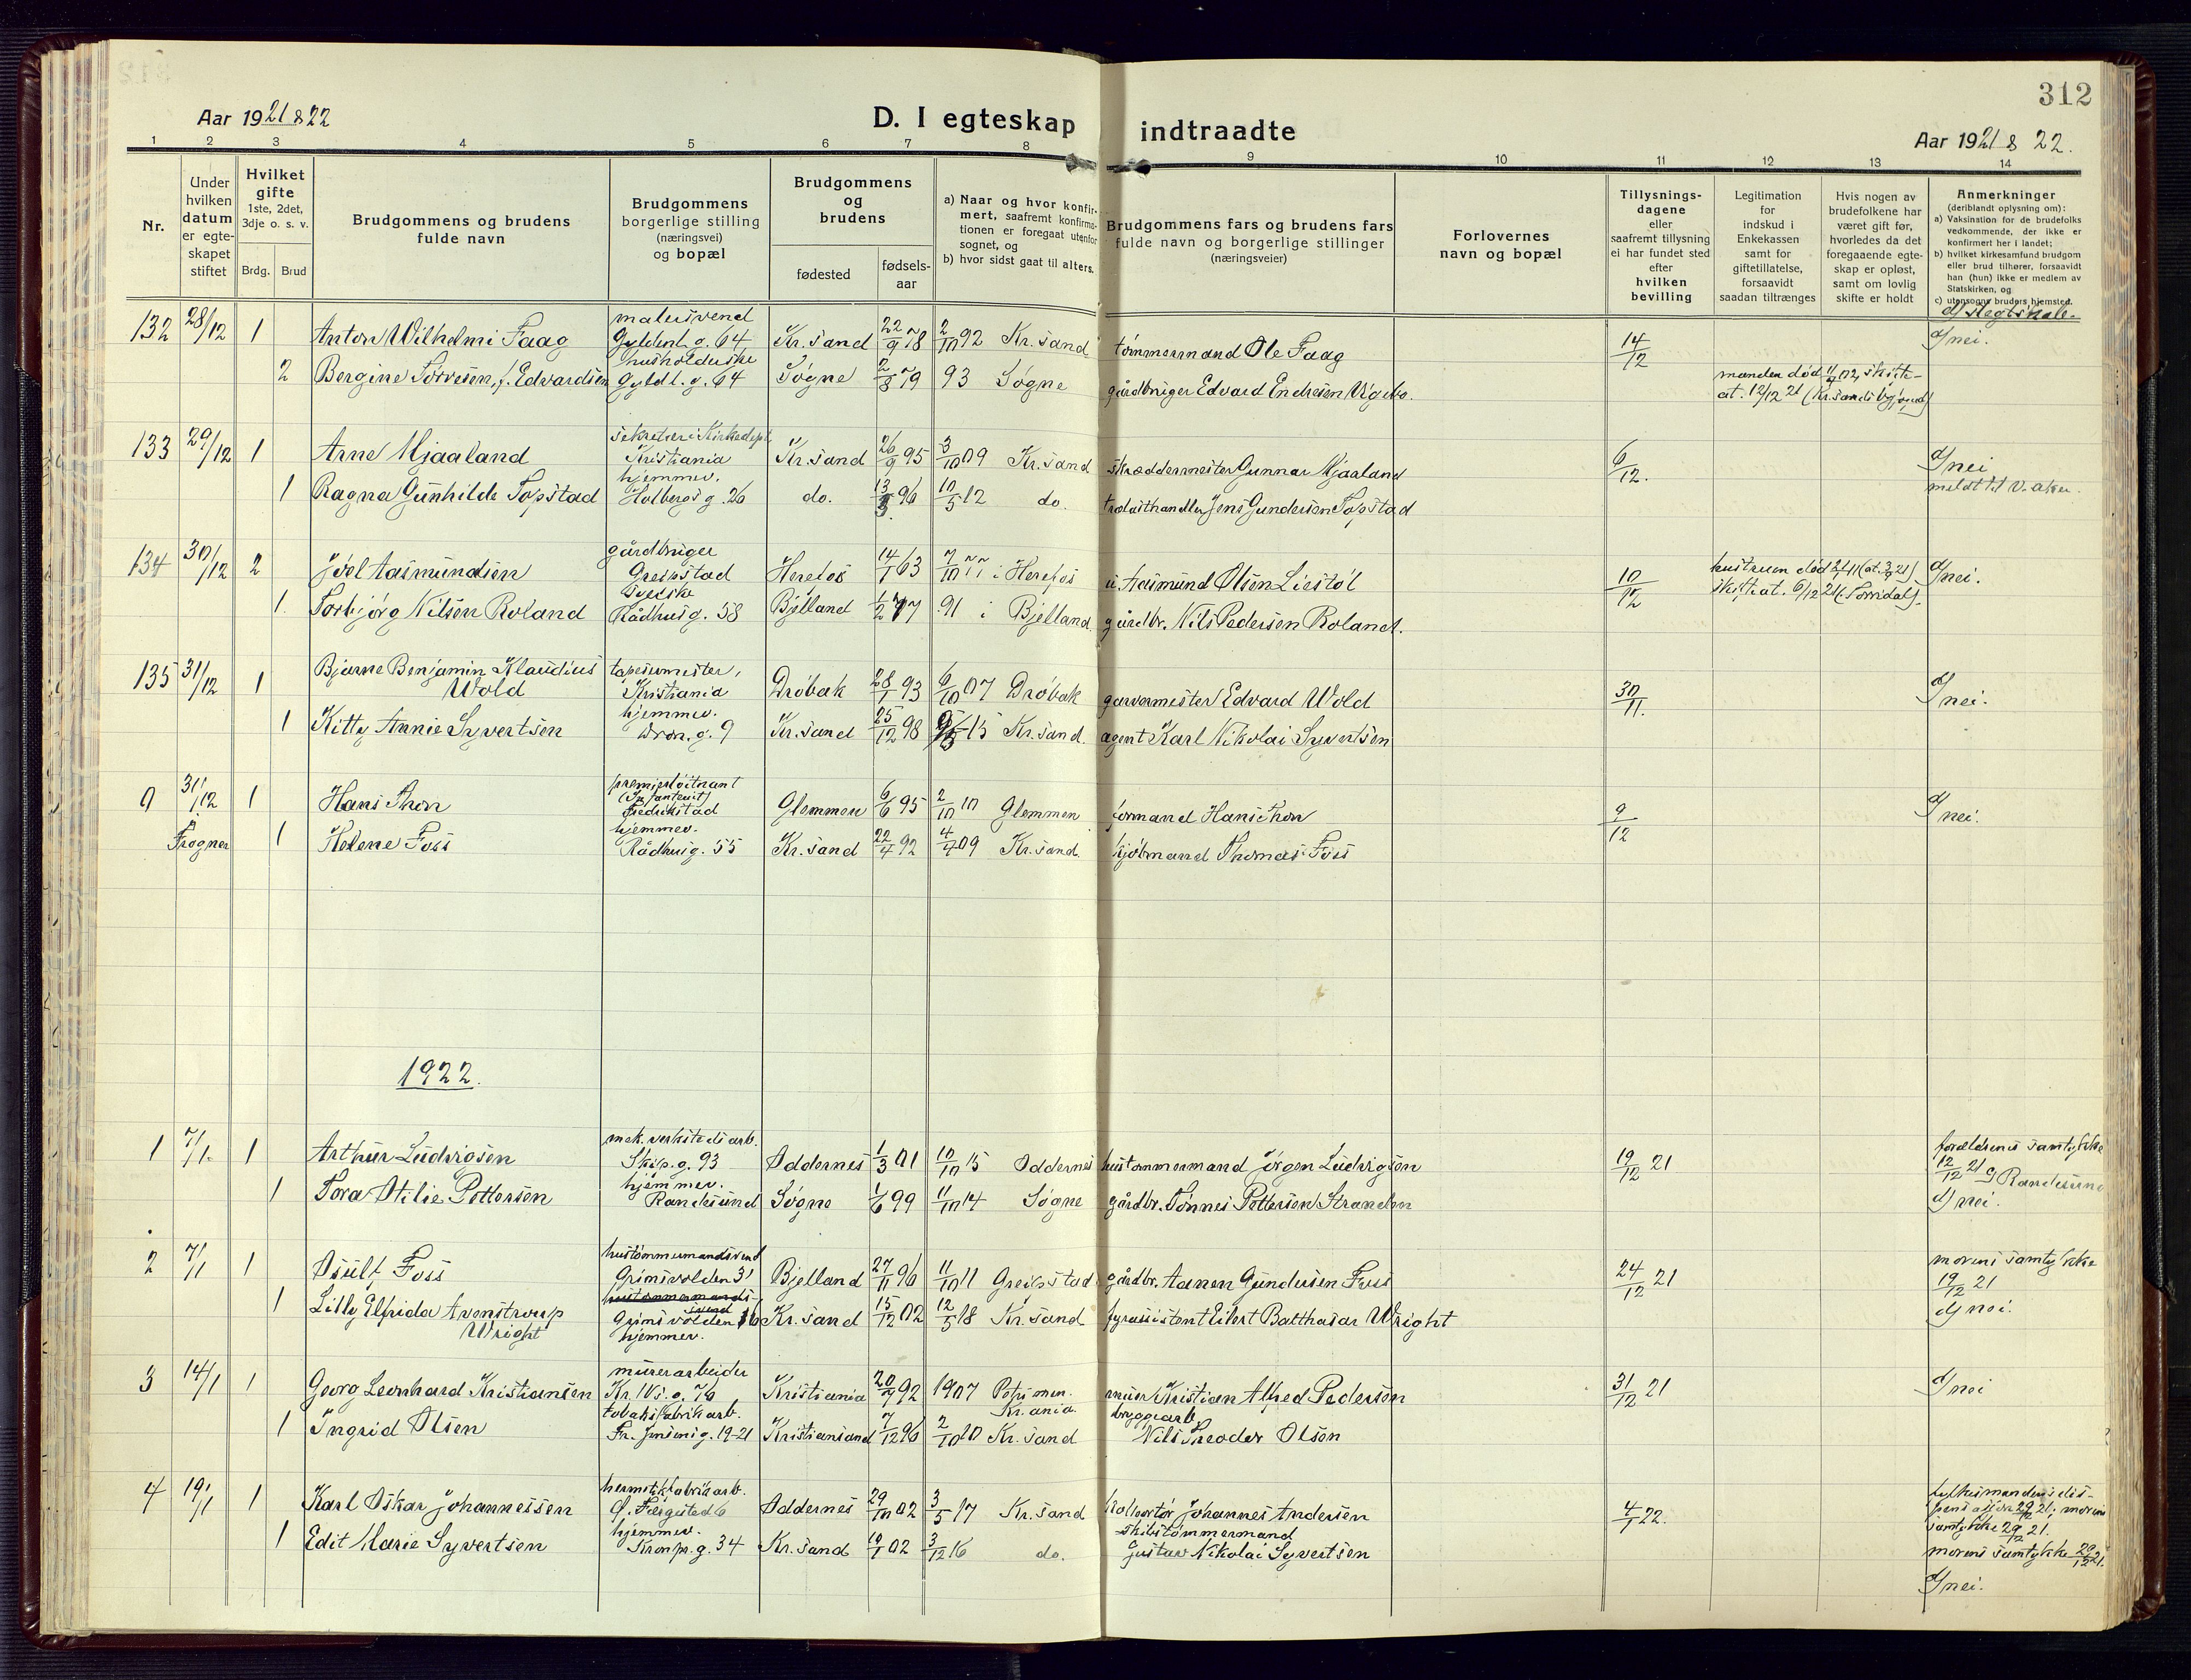 312
Aar 1921 & 22
D. I egteskap indtraadte
Aar 1921 & 22.
1 2 3 4 5 6 7 8 9 10 11 12 13 14
Nr.
Under hvilken datum er egteskapet stiftet
Hvilket gifte
1ste, 2det, 3dje o. s. v.
Brdg. Brud
Brudgommens og brudens fulde navn
Brudgommens borgerlige stilling (næringsvei) og bopæl
Brudgommens og brudens
fødested
fødsels-aar
a) Naar og hvor konfirmert, saafremt konfirmationen er foregaat utenfor sognet, og
b) hvor sidst gaat til alters.
Brudgommens fars og brudens fars fulde navn og borgerlige stillinger (næringsveier)
Forlovernes navn og bopæl
Tillysningsdagene eller saafremt tillysning ei har fundet sted efter hvilken bevilling
Legitimation for indskud i Enkekassen samt for giftetillatelse, forsaavidt saadan tiltrænges
Hvis nogen av brudefolkene har været gift før, hvorledes da det foregaaende egteskap er opløst, samt om lovlig skifte er holdt
Anmerkninger
(deriblandt oplysning om):
a) Vaksination for de brudefolks vedkommende, der ikke er konfirmert her i landet;
b) hvilket kirkesamfund brudgom eller brud tilhører, forsaavidt han (hun) ikke er medlem av Statskirken, og
c) utensogns bruders hjemsted.
d) slegtskab.
132 28/12 1 Anton Wilhelmi Faag malersvend Gyldenl.g. 64 Kr.sand 22/9 78 2/10 92 Kr.sand tømmermand Ole Faag 14/12 d) nei.
2 Bergine Torvesen, f. Edvardsen husholderske Gyldl.g. 64 Søgne 2/8 79 93 Søgne gårdbruger Edvard Endresen manden død 02, skifte-
at. 12/12 21 (Kr.sands
133 29/12 1 Arne Mjaaland sekretær i Kirkedept. Kristiania Kr.sand 26/9 95 3/10 09 Kr.sand skræddermester Gunnar Mjaaland 6/12. d) nei
meldt til V. Aker.
1 Ragna Gunhilde Topstad hjemmev. Holbergs g. 26 do. 13/3 96 10/5 12 do. trælasthandler Jens Gundersen Topstad
134 30/12 2 Joel Aasmundsen gårdbruger Greipstad Herefos 14/1 63 7/10 77 i Herefos Aasmund Olsen Liestøl 10/12 hustruen død
skifteat. 6/12 21 (Torridal). d) nei.
1. Torbjørg Nilsen Roland Rådhusg. 58 Bjelland 1/2 77 91 i Bjelland gårdbr. Nils Pedersen Roland.
135 31/12 1 Bjarne Benjamin Klaudius Wold tapesermester, Kristiania Drøbak 28/1 93 6/10 07 Drøbak garvermester Edvard Wold 30/11. d) nei.
1 Kitty Annie Syvertsen hjemmev. Dron.g. 9 Kr.sand 25/12 98 13 Kr.sand. agent Karl Nikolai Syvertsen
9 31/12 1 Hans Thon premierløitnant (Infanteriet) Fredrikstad Glemmen 6/6 95 2/10 10 Glemmen formand Hans Thon 9/12 d) nei.
Frogner 1 Helene Foss hjemmev. Rådhusg. 55 Kr.sand 22/4 92 4/4 09 Kr.sand. kjøbmand Thomas Foss
1922.
1 7/1. 1 Arthur Ludvigsen mek. verkstedsarb. Skip.g. 93 Oddernes 1/3 01 10/10 15 Oddernes hustømmermand Jørgen Ludvigsen 19/12 21 forældrenes samtykke
12/12 21 c) Randesund
d) nei.
1 Tora Otilie Pettersen hjemmev. Randesund Søgne 1/6 99 11/10 14 Søgne gårdbr. Tønnes Pettersen Stranden
2 7/1 1 Osult Foss hustømmermandsvend Grimsvolden 31 Bjelland 27/11 96 11/10 11 Greipstad gårdbr. Aanen Gundersen Foss 24/12 21 morens samtykke
19/12 21
d) nei.
1 Lilly Elfrida Avenstroup Wright hustømmermands-svend Grimsvolden 16 hjemmev. Kr.sand 15/12 02 12/5 18 Kr.sand fyrassistent Eilert Balthasar Wright
3 14/1 1 Georg Leonhard Kristiansen murerarbeider Kr.IVs.g. 76 Kristiania 20/9 92 1907 Petri men. Kr.ania. murer Kristian Alfred Pedersen 31/12 21 d) nei
1 Ingrid Olsen tobaksfabrikarb. Fr. Jensensg. 19-21 Kristiansand 7/12 96 2/10 10 Kr.sand bryggearb. Nils Theodor Olsen
4 19/1 1 Karl Oskar Johannessen hermetikfabrikarb. Oddernes 29/10 02 3/5 17 Kr.sand kolportør Johannes Andersen 4/1 22. fylkesmandens dis-
pens. 29/12 21; morens
samtykke 29/12 21.
1 Edit Marie Syvertsen hjemmev. Kronpr.g. 34 Kr.sand 10/1 02 3/12 16 do. skibstømmermand Gustav Nikolai Syvertsen morens samtykke 29/12 21.
d) nei.